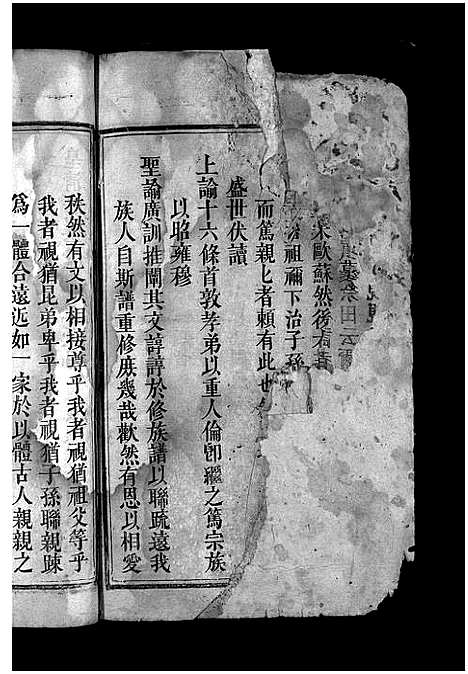 宋歐蘇然後
祖禰下治子孫
而篤親乀者賴有此也
盛世伏讀
上諭十六條首敦孝弟以重人倫卽繼之篤宗族
以昭雍穆
聖諭廣訓推闡其文諄諄於修族譜以聯疏遠我
族人自斯譜重修庶幾哉歡然有恩以相愛
秩然有文以相接尊乎我者視猶祖父等乎
我者視猶昆弟卑乎我者視猶子孫聯親疎
爲一體合遠近如一家於以體古人親親之